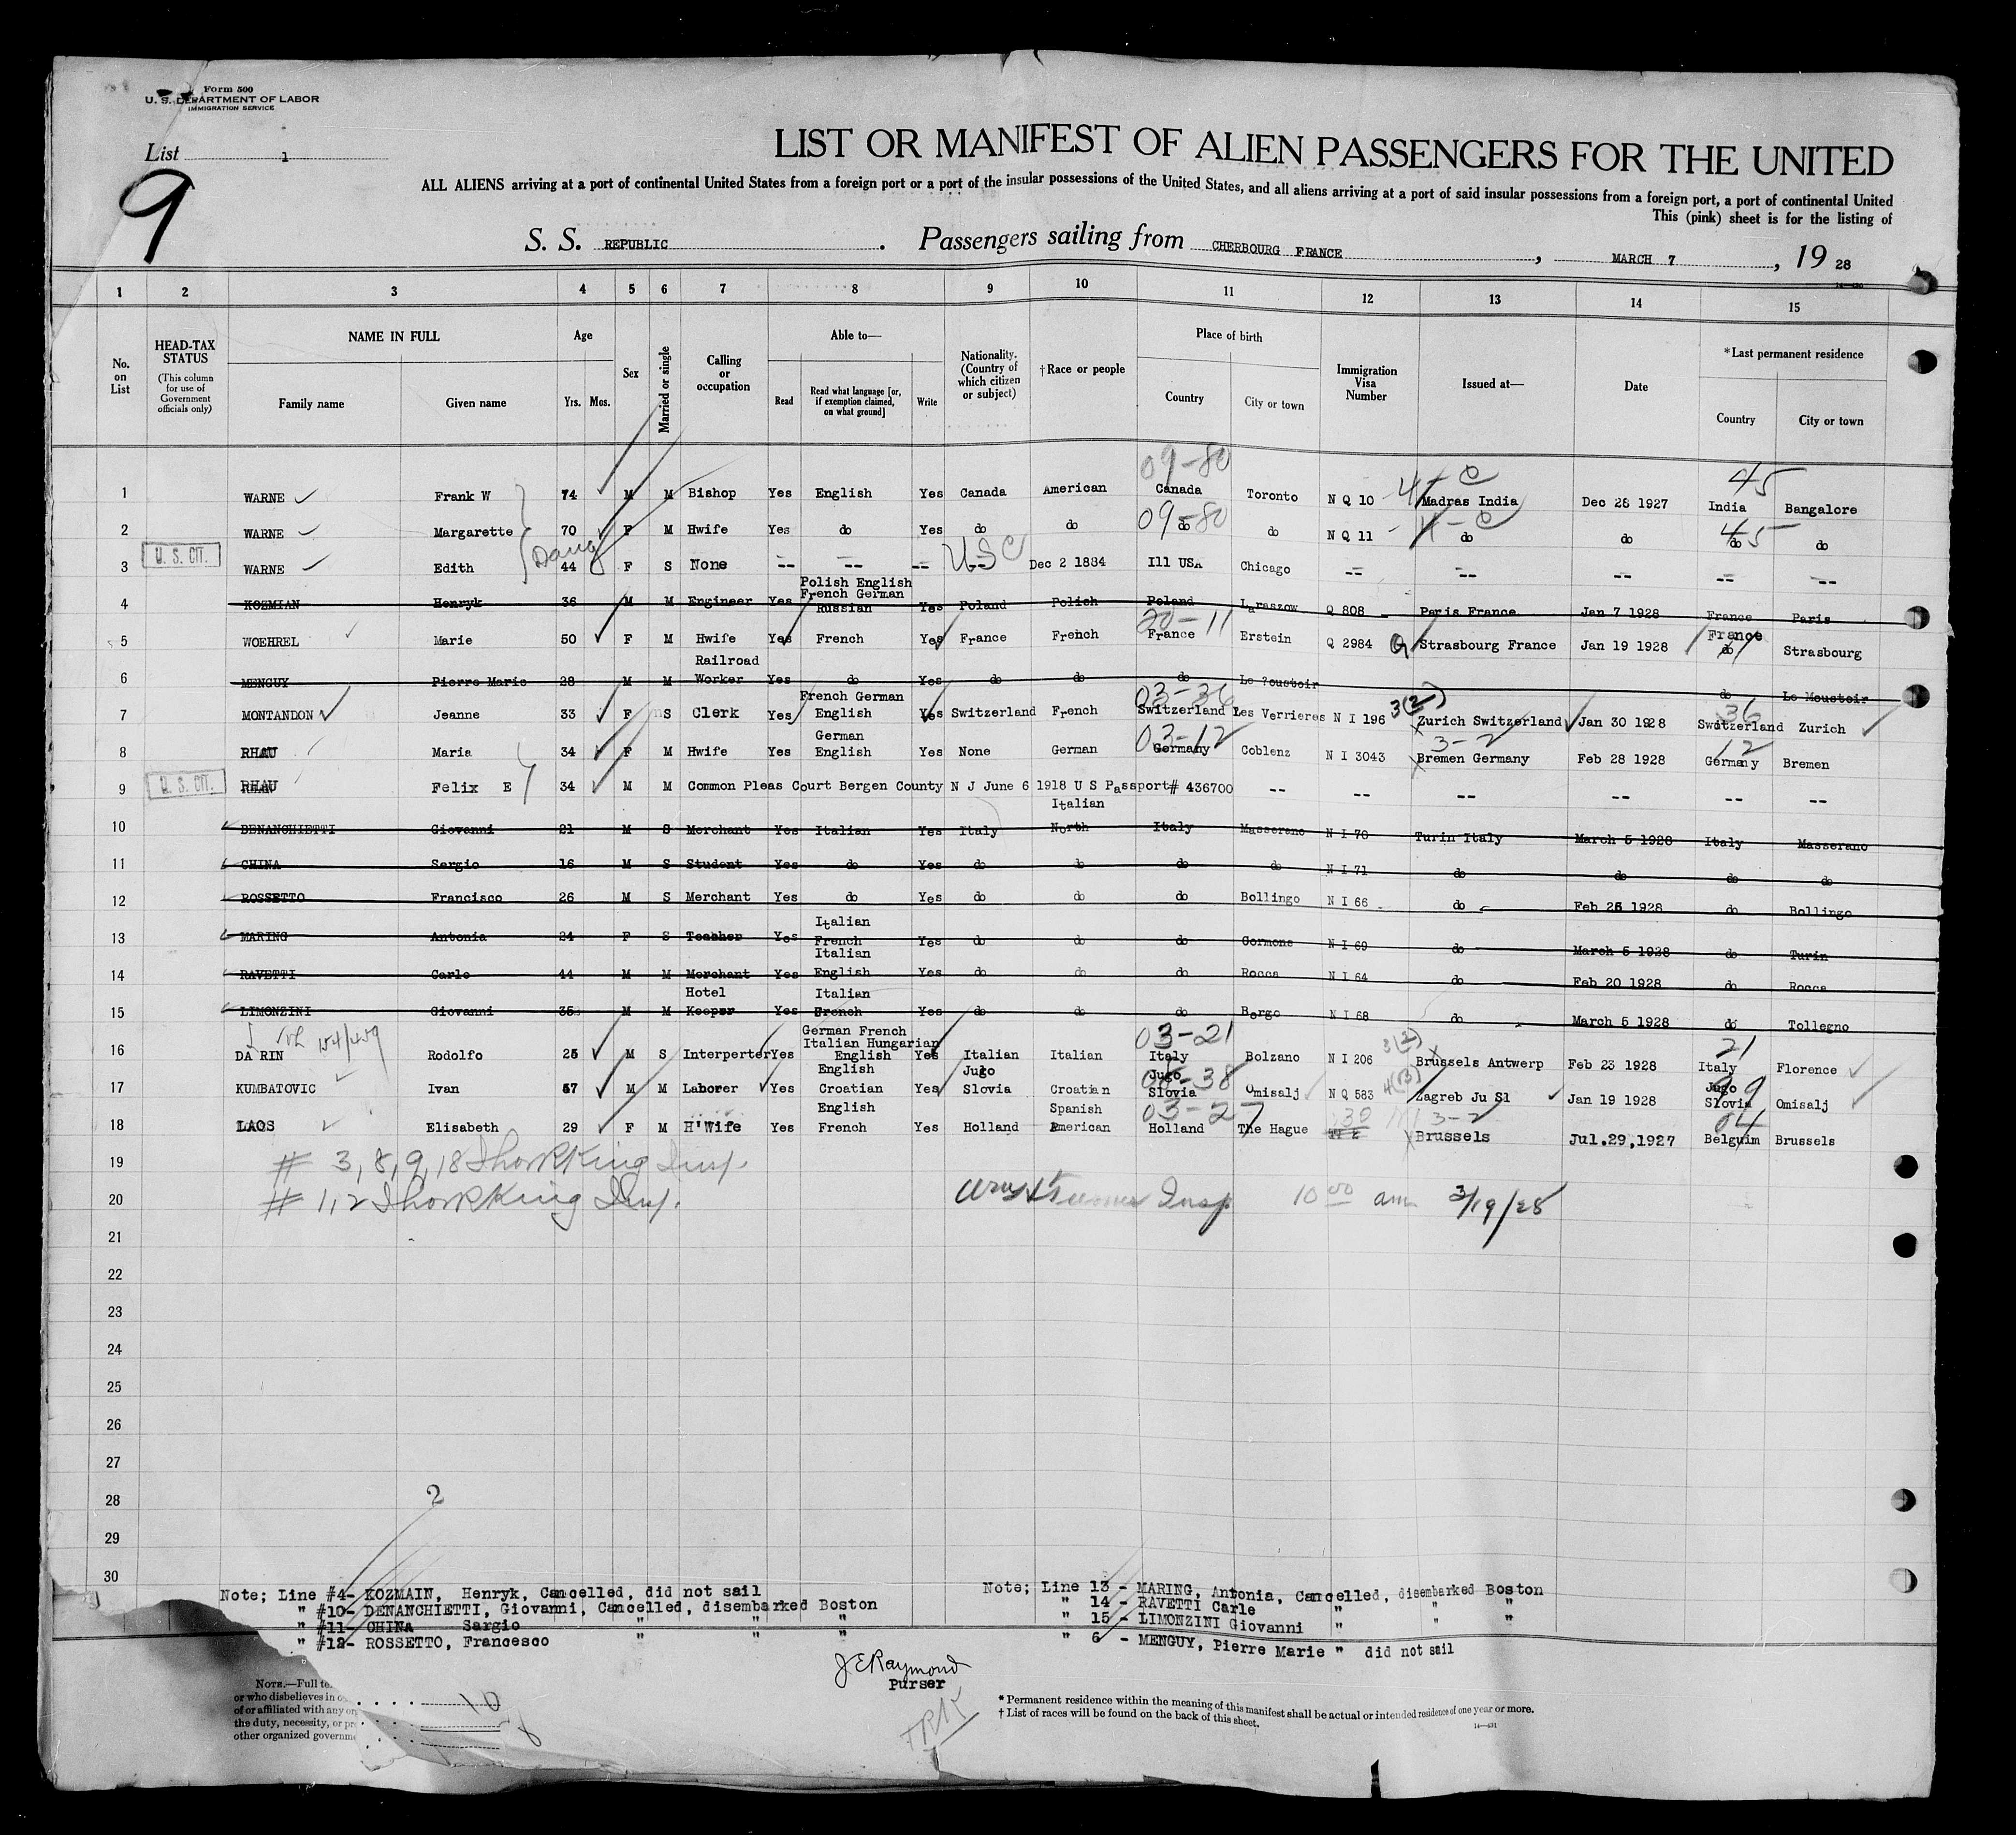 Form 500
U. S. DEPARTMENT OF LABOR
IMMIGRATION SERVICE
List 1
9
LIST OR MANIFEST OF ALIEN PASSENGERS FOR THE UNITED
ALL ALIENS arriving at a port of continental United States from a foreign port or a port of the insular possessions of the United States, and all aliens arriving at a port of said insular possessions from a foreign port, a port of continental United
This (pink) sheet is for the listing of
S. S. REPUBLIC . Passengers sailing from CHERBOURG FRANCE , MARCH 7 , 19 28
1 2 3 4 5 6 7 8 9 10 11 12 13 14 15
No. on List
HEAD-TAX STATUS (This column for use of Government officials only)
NAME IN FULL Family name Given name
Age Yrs. Mos.
Sex
Married or single
Calling or occupation
Able to— Read Read what language [or, if exemption claimed, on what ground] Write
Nationality. (Country of which citizen or subject)
†Race or people
Place of birth Country City or town
Immigration Visa Number
Issued at—
Date
*Last permanent residence Country City or town
1 WARNE Frank W 74 M M Bishop Yes English Yes Canada American 09-80 Canada Toronto N Q 10 Madras India Dec 28 1927 45 India Bangalore
2 WARNE Margarette 70 F M Hwife Yes do Yes do do 09-80 do do N Q 11 do do 45 do do
U. S. CIT. 3 WARNE Edith Daug 44 F S None -- -- -- USC Dec 2 1884 Ill USA Chicago -- -- -- -- --
4 KOZMIAN Henryk 36 M M Engineer Yes Polish English French German Russian Yes Poland Polish Poland Laraszow Q 808 Paris France Jan 7 1928 France Paris
5 WOEHREL Marie 50 F M Hwife Yes French Yes France French 20-11 France Erstein Q 2984 Strasbourg France Jan 19 1928 France do Strasbourg
6 MENGUY Pierre Marie 28 M M Railroad Worker Yes do Yes do do do Le ?oustoir do Le Moustoir
7 MONTANDON Jeanne 33 F S Clerk Yes French German English Yes Switzerland French 03-36 Switzerland Les Verrieres N I 196 3(2) Zurich Switzerland Jan 30 1928 36 Switzerland Zurich
8 RHAU Maria 34 F M Hwife Yes German English Yes None German 03-12 Germany Coblenz N I 3043 3-2 Bremen Germany Feb 28 1928 12 Germany Bremen
U. S. CIT. 9 RHAU Felix E 34 M M Common Pleas Court Bergen County N J June 6 1918 U S Passport# 436700 -- -- -- -- -- --
10 DENANCHIETTI Giovanni 21 M S Merchant Yes Italian Yes Italy Italian North Italy Masserano N I 70 Turin Italy March 5 1928 Italy Masserano
11 CHINA Sergio 16 M S Student Yes do Yes do do do do N I 71 do do do do
12 ROSSETTO Francisco 26 M S Merchant Yes do Yes do do do Bollingo N I 66 do Feb 25 1928 do Bollingo
13 MARING Antonia 24 F S Teacher Yes Italian French Yes do do do Cormons N I 69 do March 5 1928 do Turin
14 RAVETTI Carlo 44 M M Merchant Yes Italian English Yes do do do Rocca N I 64 do Feb 20 1928 do Rocca
15 LIMONZINI Giovanni 35 M M Hotel Keeper Yes Italian French Yes do do do Borgo N I 68 do March 5 1928 do Tollegno
16 DA RIN Rodolfo 25 M S Interperter Yes German French Italian Hungarian English Yes Italian Italian 03-21 Italy Bolzano N I 206 3(2) Brussels Antwerp Feb 23 1928 21 Italy Florence
17 KUMBATOVIC Ivan 57 M M Laborer Yes English Croatian Yes Jugo Slovia Croatian Jugo Slovia Omisalj N Q 583 Zagreb Ju Sl Jan 19 1928 Jugo Slovia Omisalj
18 LAOS Elisabeth 29 F M H'Wife Yes English French Yes Holland Spanish American 03-27 Holland The Hague 30 3-2 Brussels Jul.29,1927 Belguim Brussels
19 # 3, 8, 9, 18 Insp.
20 # 1, 2 Insp. Insp 10 00 am 3/19/28
21
22
23
24
25
26
27
28 2
29
30
Note; Line #4- KOZMAIN, Henryk, Cancelled, did not sail
" #10- DENANCHIETTI, Giovanni, Cancelled, disembarked Boston
" #11- CHINA Sargio " " "
" #12- ROSSETTO, Francesco " " "
Note; Line 13 - MARING, Antonia, Cancelled, disembarked Boston
" 14 - RAVETTI Carle " " "
" 15 - LIMONZINI Giovanni " " "
" 6 - MENGUY, Pierre Marie " did not sail
J E Raymond
Purser
NOTE.—Full te
or who disbelieves in o
of or affiliated with any or
the duty, necessity, or pr
other organized governme
10
* Permanent residence within the meaning of this manifest shall be actual or intended residence of one year or more.
† List of races will be found on the back of this sheet.
14—431